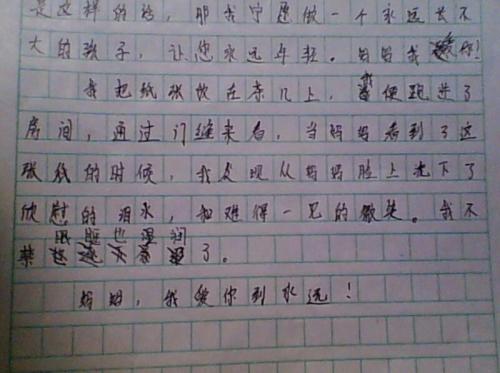 是这样的话，那我宁愿做一个永远长不
大的孩子，让您永远年轻。妈妈我爱你！
我把纸张放在茶几上，我便跑进了
房间，通过门缝来看，当妈妈看到了这
张纸的时候，我发现从妈妈脸上流下了
欣慰的泪水，和难得一见的微笑。我不
禁眼眶也湿润了。
妈妈，我爱你到永远！